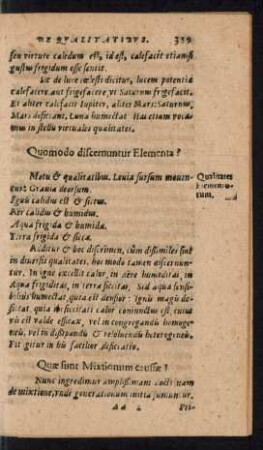 DE QVALITATIBVS. 359
seu virtute calidum est, id est, calefacit etiamsi
gustui frigidum esse sentit.
Et de luce cœlesti dicitur, lucem potentia
calefacere aut frigefacere, vt Saturnus frigefacit.
Et aliter calefacit Iupiter, aliter Mars: Saturnus,
Mars desiccant, Luna humectat. Has etiam voca-
mus in stellis virtuales qualitates.
Quomodo discernuntur Elementa?
Motu & qualitatibus. Leuia sursum mouen-
tur: Grauia deorsum.
Qualitates
Elemento-
rum.
Ignis calidus est & siccus.
Aer calidus & humidus.
Aqua frigida & humida.
Terra frigida & sicca.
Additur & hoc discrimen, cùm dissimiles sint
in diuersis qualitates, hoc modo tamen discernun-
tur. In igne excellit calor, in aëre humiditas, in
Aqua frigiditas, in terra siccitas. Sed aqua sen-
sibilius humectat quia est densior: Ignis magis de-
siccat, quia ibi siccitati calor coniunctus est, cuius
vis est valde efficax, vel in congregandis homoge-
neis, vel in dispandendis & resoluendis heterogeneis.
Fit igitur in his facilior desiccatio.
Quæ sunt Mixtionum causæ?
Nunc ingredimur amplissimam doctrinam
de mixtione, vnde generationum initia sumuntur,
Aa 4